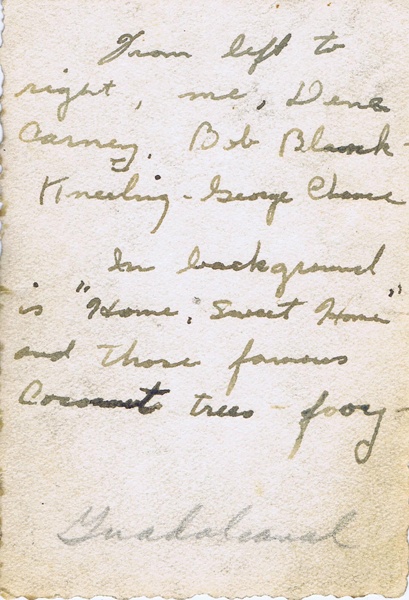 From left to
right, me, Dene
Carney, Bob Blank-
Kneeling - George Chance
In background
is "Home, Sweet Home"
and those famous
Coconut trees - fooey -
Guadalcanal